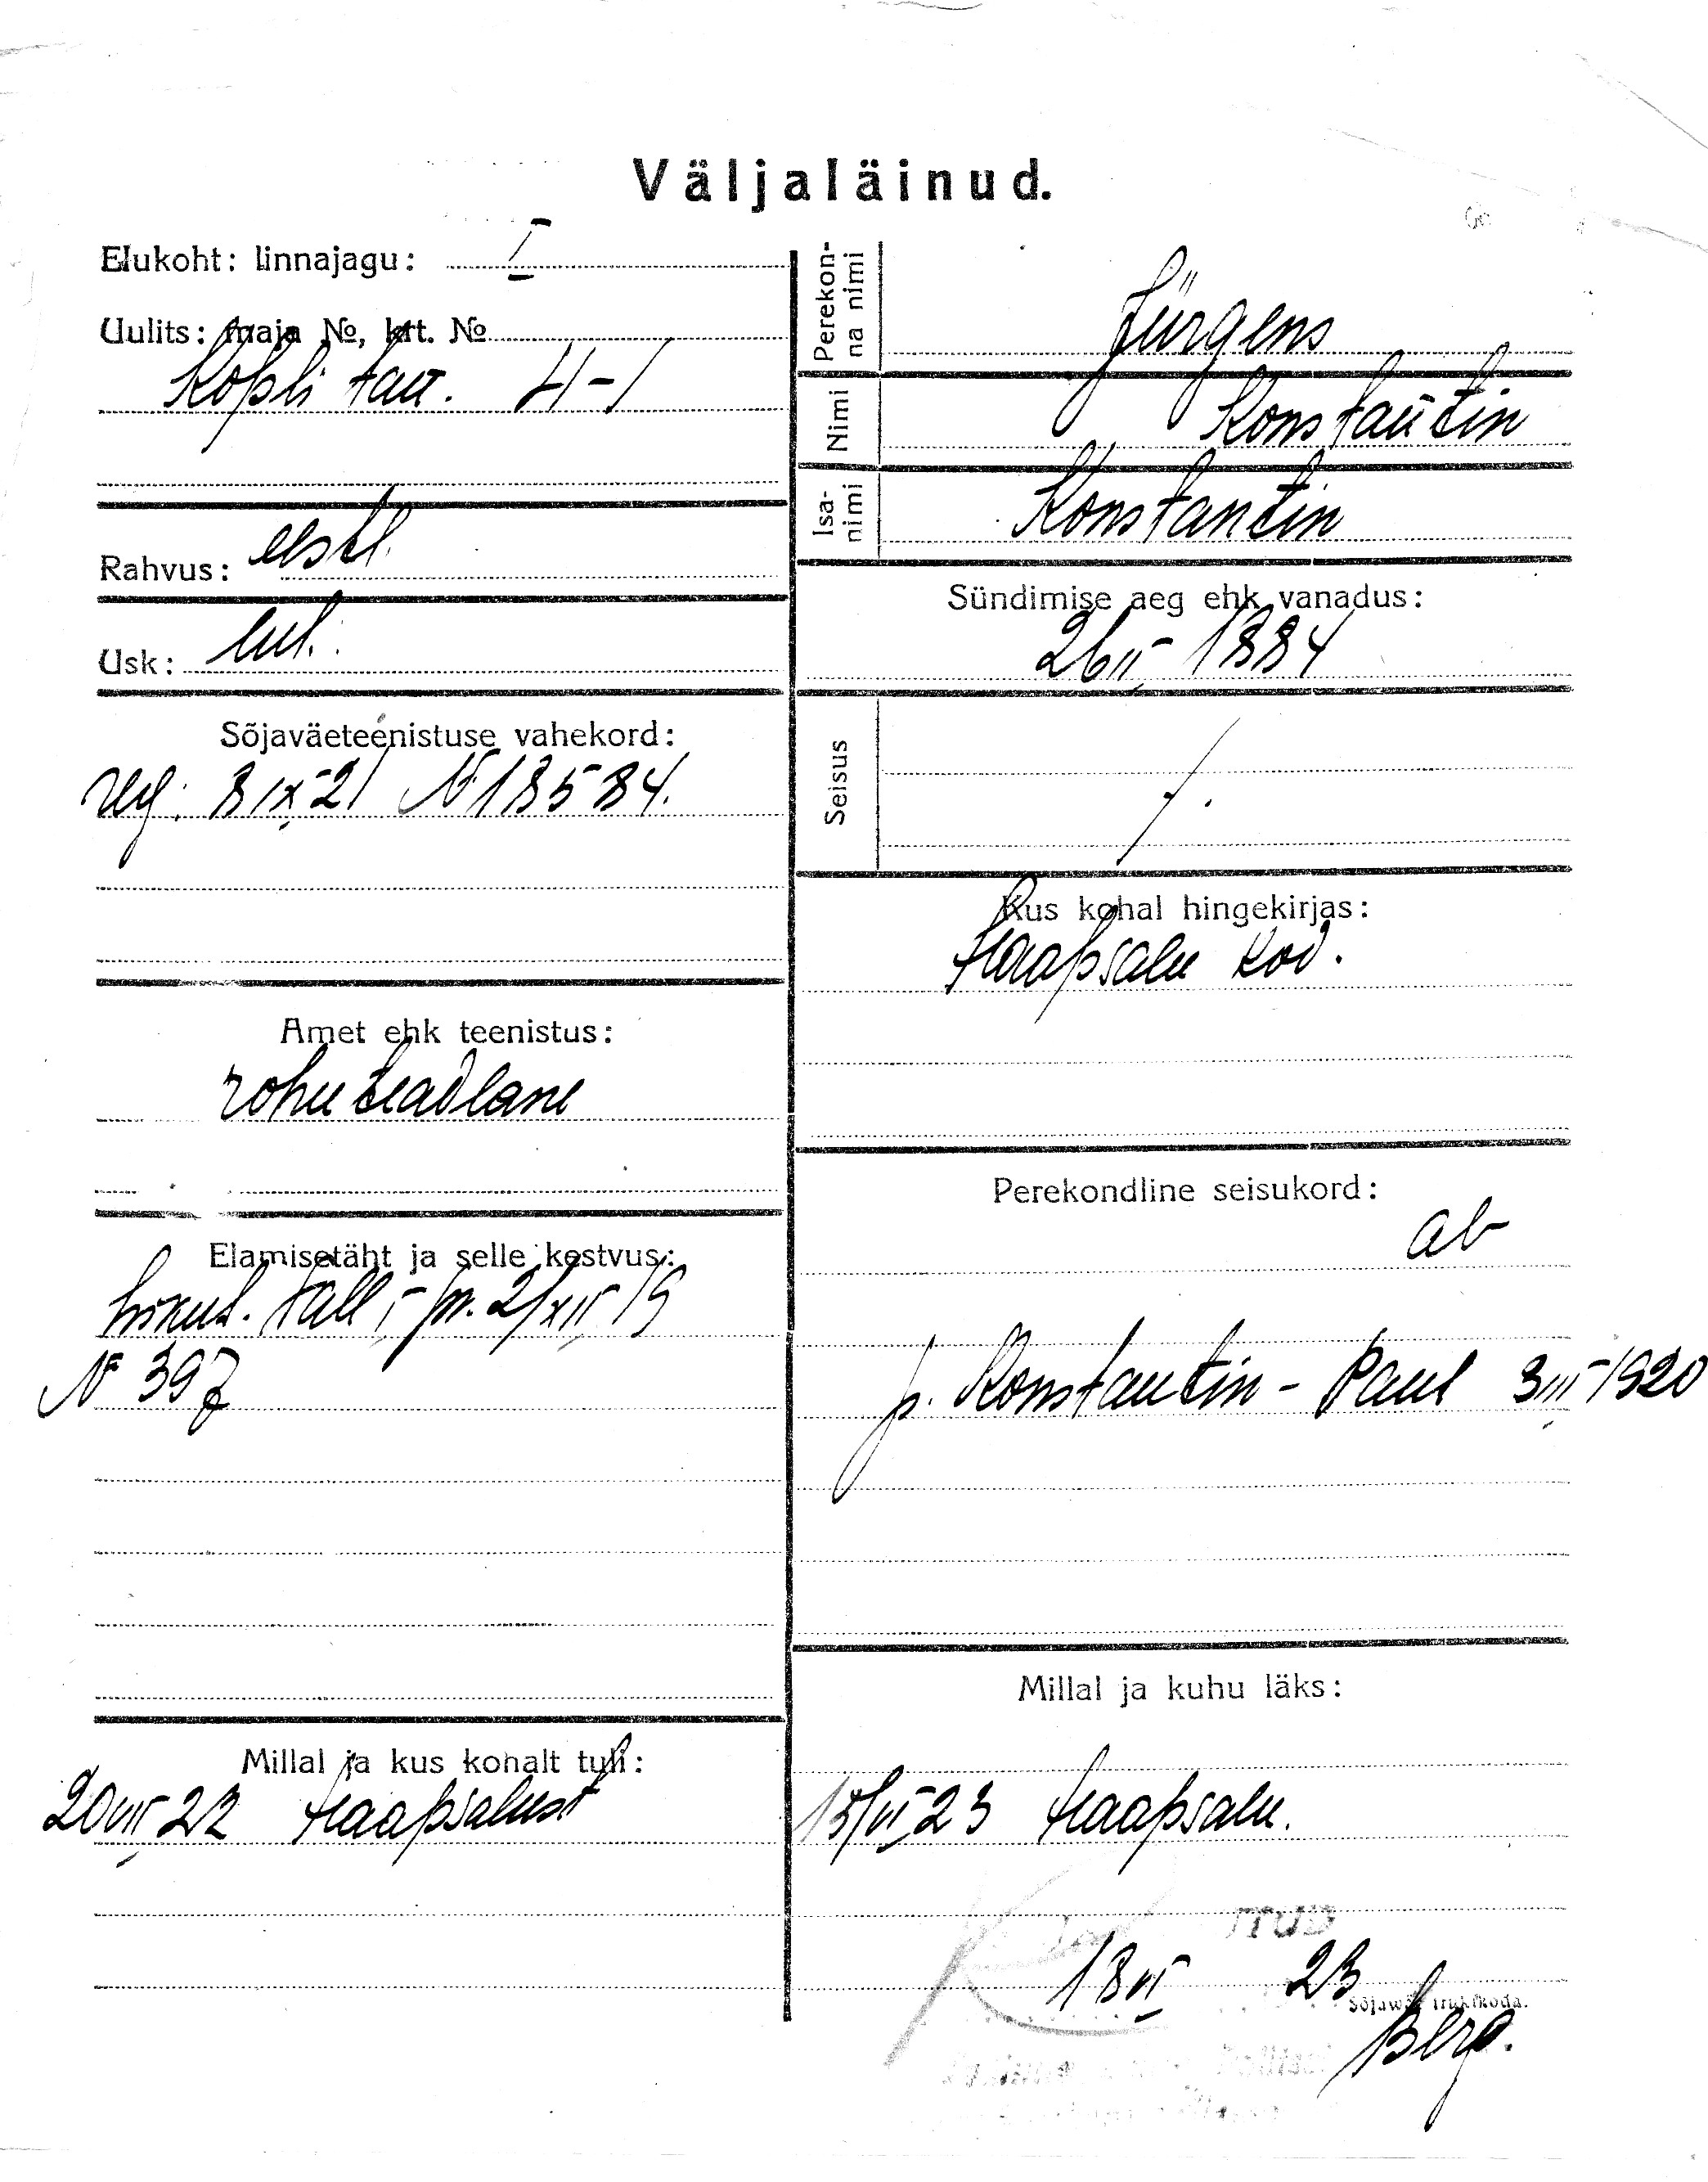 Väljaläinud.
Elukoht: linnajagu: I
Uulits: maja №, krt. №
Kopli tän. 4-1
Rahvus: eestl.
Usk: lut.
Sõjaväeteenistuse vahekord:
reg. 8 IX 21 № 18584.
Amet ehk teenistus:
rohuteadlane
Elamisetäht ja selle kestvus:
isikut. Tall I jsk. 2/XII 19
№ 397
Millal ja kus kohalt tuli:
20 VII 22 Haapsalust
Perekonna nimi
Jürgens
Nimi
Konstantin
Isanimi
Konstantin
Sündimise aeg ehk vanadus:
26 II 1884
Seisus
Kus kohal hingekirjas:
Haapsalu kod.
Perekondline seisukord:
ab
p. Konstantin - Paul 3 III 1920
Millal ja kuhu läks:
15/VI 23 Haapsalu.
18 VI 23
Sõjawäe trükikoda.
Berg.